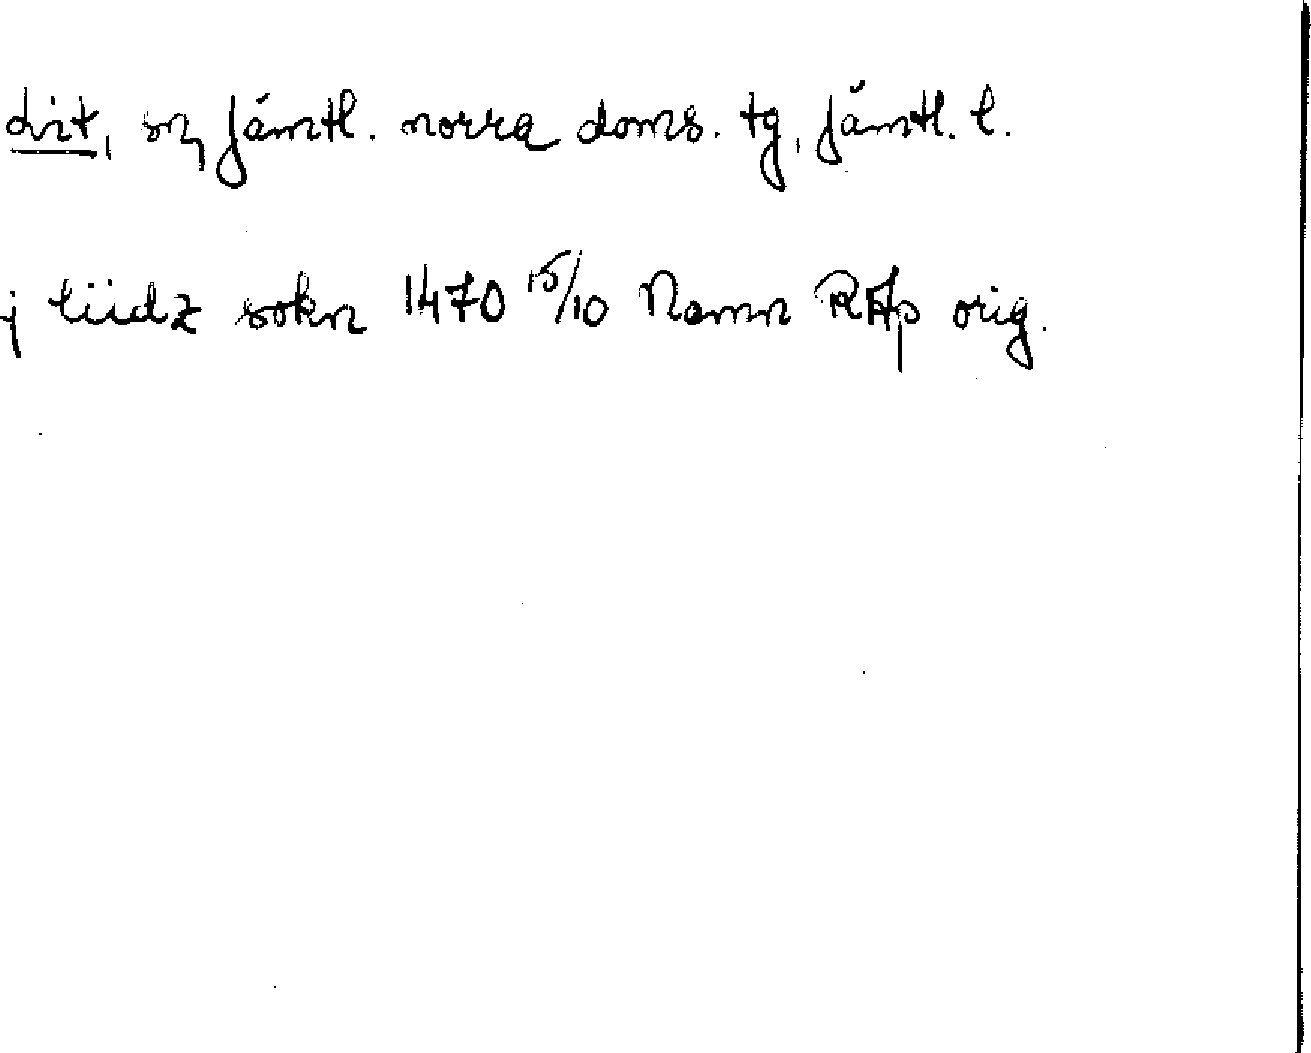 Lit, sn, Jämtl. norra doms. tg, Jämtl. l.
j liidz sokn 1470 15/10 Namn RAp orig.